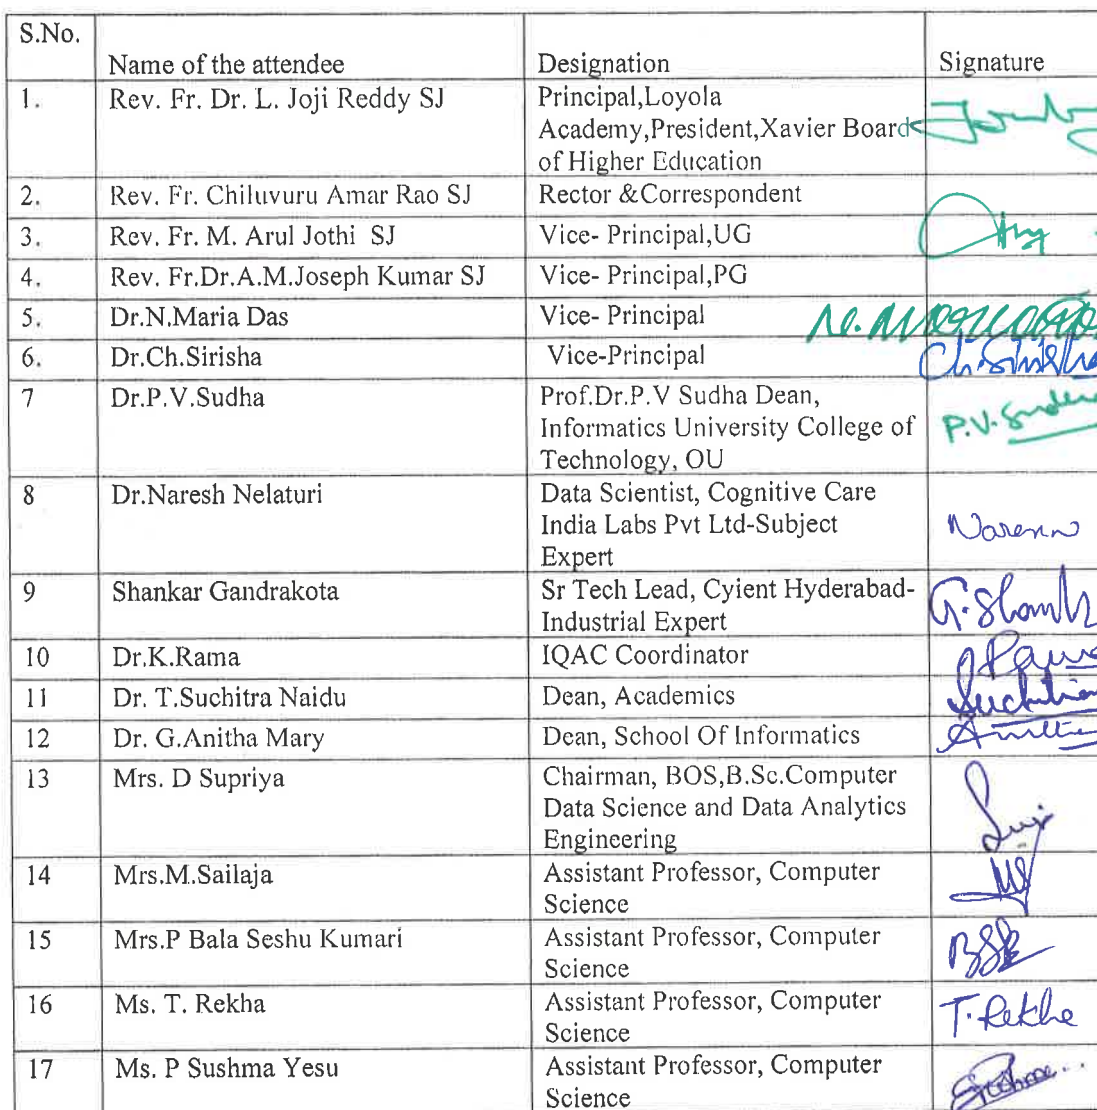 S.No. Name of the attendee Designation Signature
1. Rev. Fr. Dr. L. Joji Reddy SJ Principal,Loyola
Academy,President,Xavier Board
of Higher Education
2. Rev. Fr. Chiluvuru Amar Rao SJ Rector &Correspondent
3. Rev. Fr. M. Arul Jothi SJ Vice- Principal,UG
4. Rev. Fr.Dr.A.M.Joseph Kumar SJ Vice- Principal,PG
5. Dr.N.Maria Das Vice- Principal
6. Dr.Ch.Sirisha Vice-Principal Ch.Sirisha
7 Dr.P.V.Sudha Prof.Dr.P.V Sudha Dean, P.V.Sudha
Informatics University College of
Technology, OU
8 Dr.Naresh Nelaturi Data Scientist, Cognitive Care
India Labs Pvt Ltd-Subject
Expert
9 Shankar Gandrakota Sr Tech Lead, Cyient Hyderabad-
Industrial Expert
10 Dr.K.Rama IQAC Coordinator
11 Dr. T.Suchitra Naidu Dean, Academics
12 Dr. G.Anitha Mary Dean, School Of Informatics
13 Mrs. D Supriya Chairman, BOS,B.Sc.Computer
Data Science and Data Analytics
Engineering
14 Mrs.M.Sailaja Assistant Professor, Computer
Science
15 Mrs.P Bala Seshu Kumari Assistant Professor, Computer BSK
Science
16 Ms. T. Rekha Assistant Professor, Computer T.Rekha
Science
17 Ms. P Sushma Yesu Assistant Professor, Computer
Science